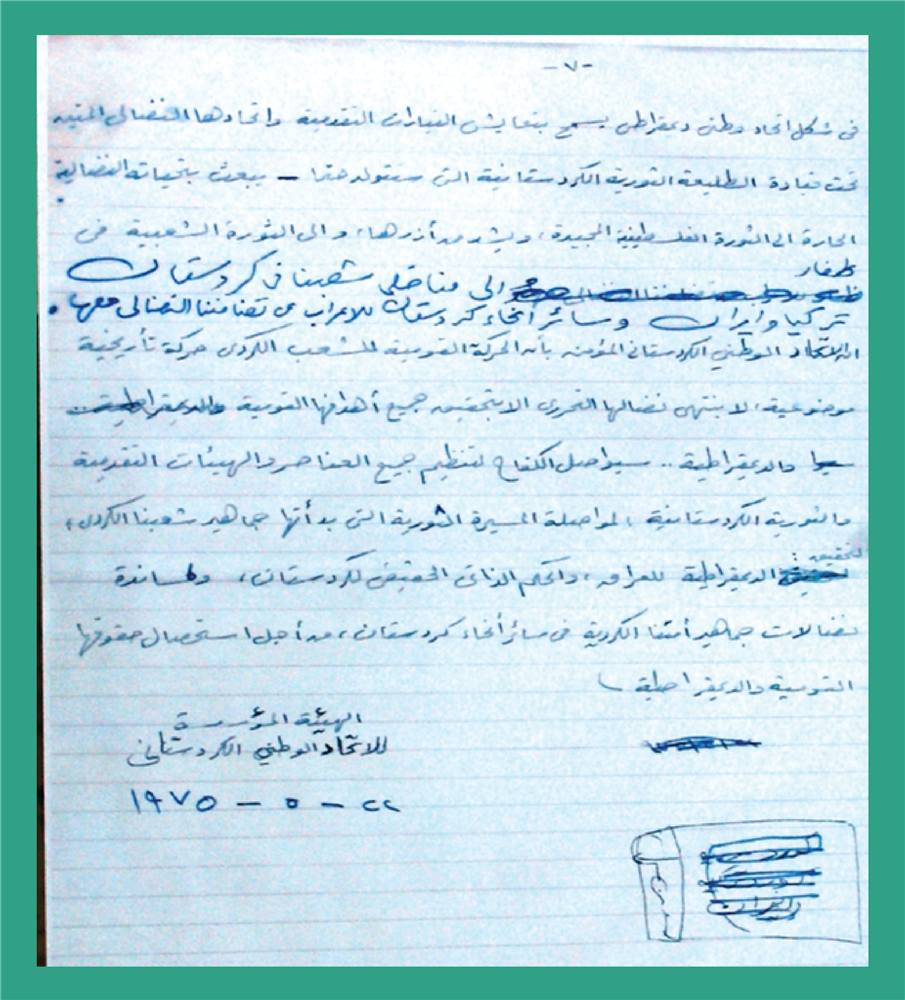 -٧-
في شكل اتحاد وطني ديمقراطي يسمح بتعايش التيارات التقدمية واتحادها النضالي المتين
تحت قيادة الطليعة الثورية الكردستانية التي ستتولد حتما – يبعث بتحياته النضالية
الحارة الى الثورة الفلسطينية المجيدة، ويشد من أزرها، والى الثورة الشعبية في
ظفار
الى مناضلي شعبنا في كردستان
تركيا وايران وسائر انحاء كردستان للاعراب عن تضامننا النضالي معها.
ان الاتحاد الوطني الكردستاني المؤمن بأن الحركة القومية للشعب الكردي حركة تأريخية
موضوعية، لا ينتهي نضالها التحرري الا بتحقيق جميع أهدافها القومية
والديمقراطية .. سيواصل الكفاح لتنظيم جميع العناصر والهيئات التقدمية
والثورية الكردستانية، لمواصلة المسيرة الثورية التي بدأتها جماهير شعبنا الكردي،
لتحقيق
الديمقراطية للعراق، والحكم الذاتي الحقيقي لكردستان، ولمساندة
نضالات جماهير أمتنا الكردية في سائر أنحاء كردستان، من أجل استحصال حقوقها
القومية والديمقراطية
الهيئة المؤسسة
للاتحاد الوطني الكردستاني
٢٢ – ٥ – ١٩٧٥